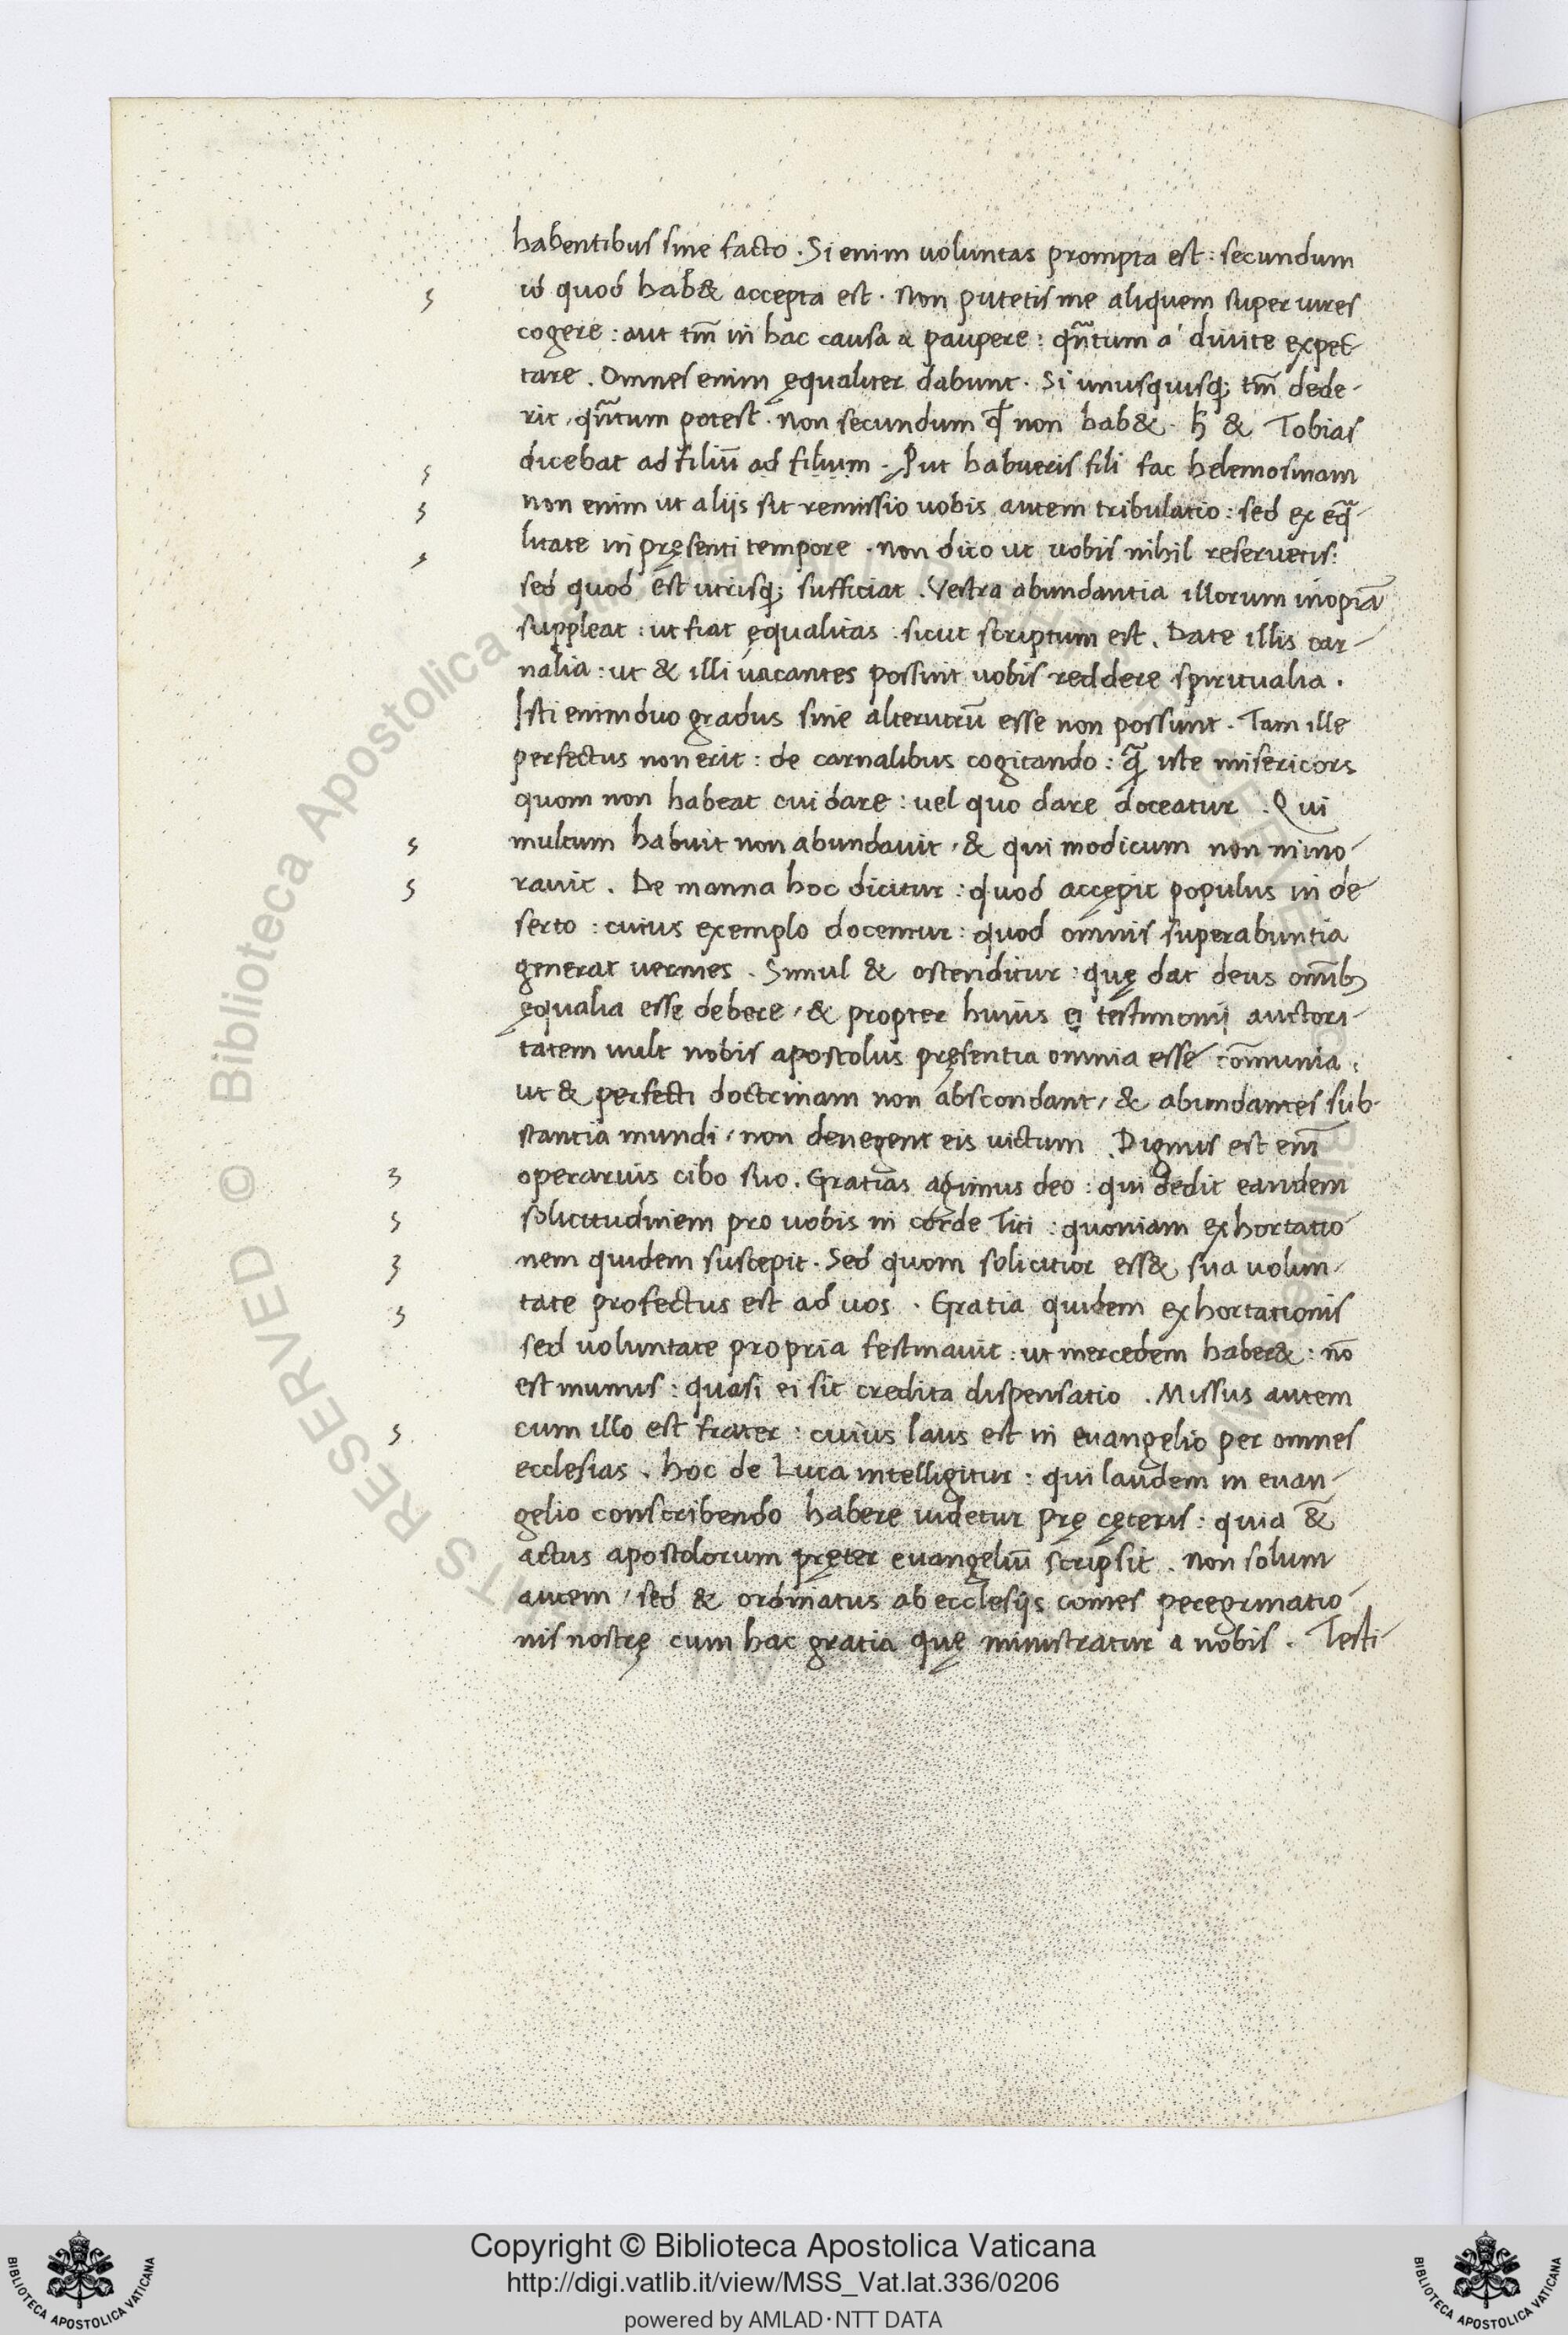 habentibus sine facto . Si enim uoluntas prompta est : secundum
id quod hab& accepta est . Non putetis me aliquem super uires
cogere : aut tm̄ in hac causa a paupere : qn̄tum a' diuite expec
tare . Omnes enim ęqualiter dabunt . Si unusquisq; tm̄ dede-
rit , qn̄tum potest . Non secundum qđ non hab& . h̄ & Tobias
dicebat ad filiū ad filium . Put habueris fili fac helemosinam
non enim ut aliis sit remissio uobis autem tribulatio : sed ex eq̄-
litate in pręsenti tempore . Non dico ut uobis nihil reseruetis :
sed quod est utrisq; sufficiat . Vestra abundantia illorum inopiā
suppleat : ut fiat ęqualitas : sicut scriptum est . Date illis car-
nalia : ut & illi uacantes possint uobis reddere spiritualia .
Isti enim duo gradus sine alterutrū esse non possunt . Tam ille
perfectus non erit : de carnalibus cogitando : q̄ iste misericors
quom non habeat cui dare : uel quo dare doceatur . Qui
multum habuit non abundauit , & qui modicum non mino-
rauit . De manna hoc dicitur : quod accępit populus in de-
serto : cuius exemplo docemur : quod omnis superabuntia
generat uermes . Simul & ostenditur : quę dat deus omīb;
ęqualia esse debere , & propter huius ei testimonii auctori-
tatem uult nobis apostolus pręsentia omnia esse com̄unia :
ut & perfecti doctrinam non abscondant , & abundantes sub-
stantia mundi , non denegent eis uictum . Dignus est enī
operarius cibo suo . Gratias agimus deo : qui dedit eandem
solicitudinem pro uobis in corde Titi : quoniam exhortatio-
nem quidem suscepit . Sed quom solicitior ess& sua uolun-
tate profectus est ad uos . Gratia quidem exhortationis
sed uoluntate propria festinauit : ut mercedem haber& : nō
est munus : quasi ei sit credita dispensatio . Missus autem
cum illo est frater : cuius laus est in euangelio per omnes
ecclesias . hoc de Luca intelligitur : qui laudem in euan-
gelio conscribendo habere uidetur prę cęteris : quia &
actus apostolorum pręter euangeliū scripsit . Non solum
autem , sed & ordinatus ab ecclesiis comes peregrinatio-
nis nostrę cum hac gratia quę ministratur a nobis . Testi-
© Biblioteca Apostolica Vaticana
Copyright © Biblioteca Apostolica Vaticana
http://digi.vatlib.it/view/MSS_Vat.lat.336/0206
powered by AMLAD·NTT DATA
BIBLIOTECA APOSTOLICA VATICANA
BIBLIOTECA APOSTOLICA VATICANA